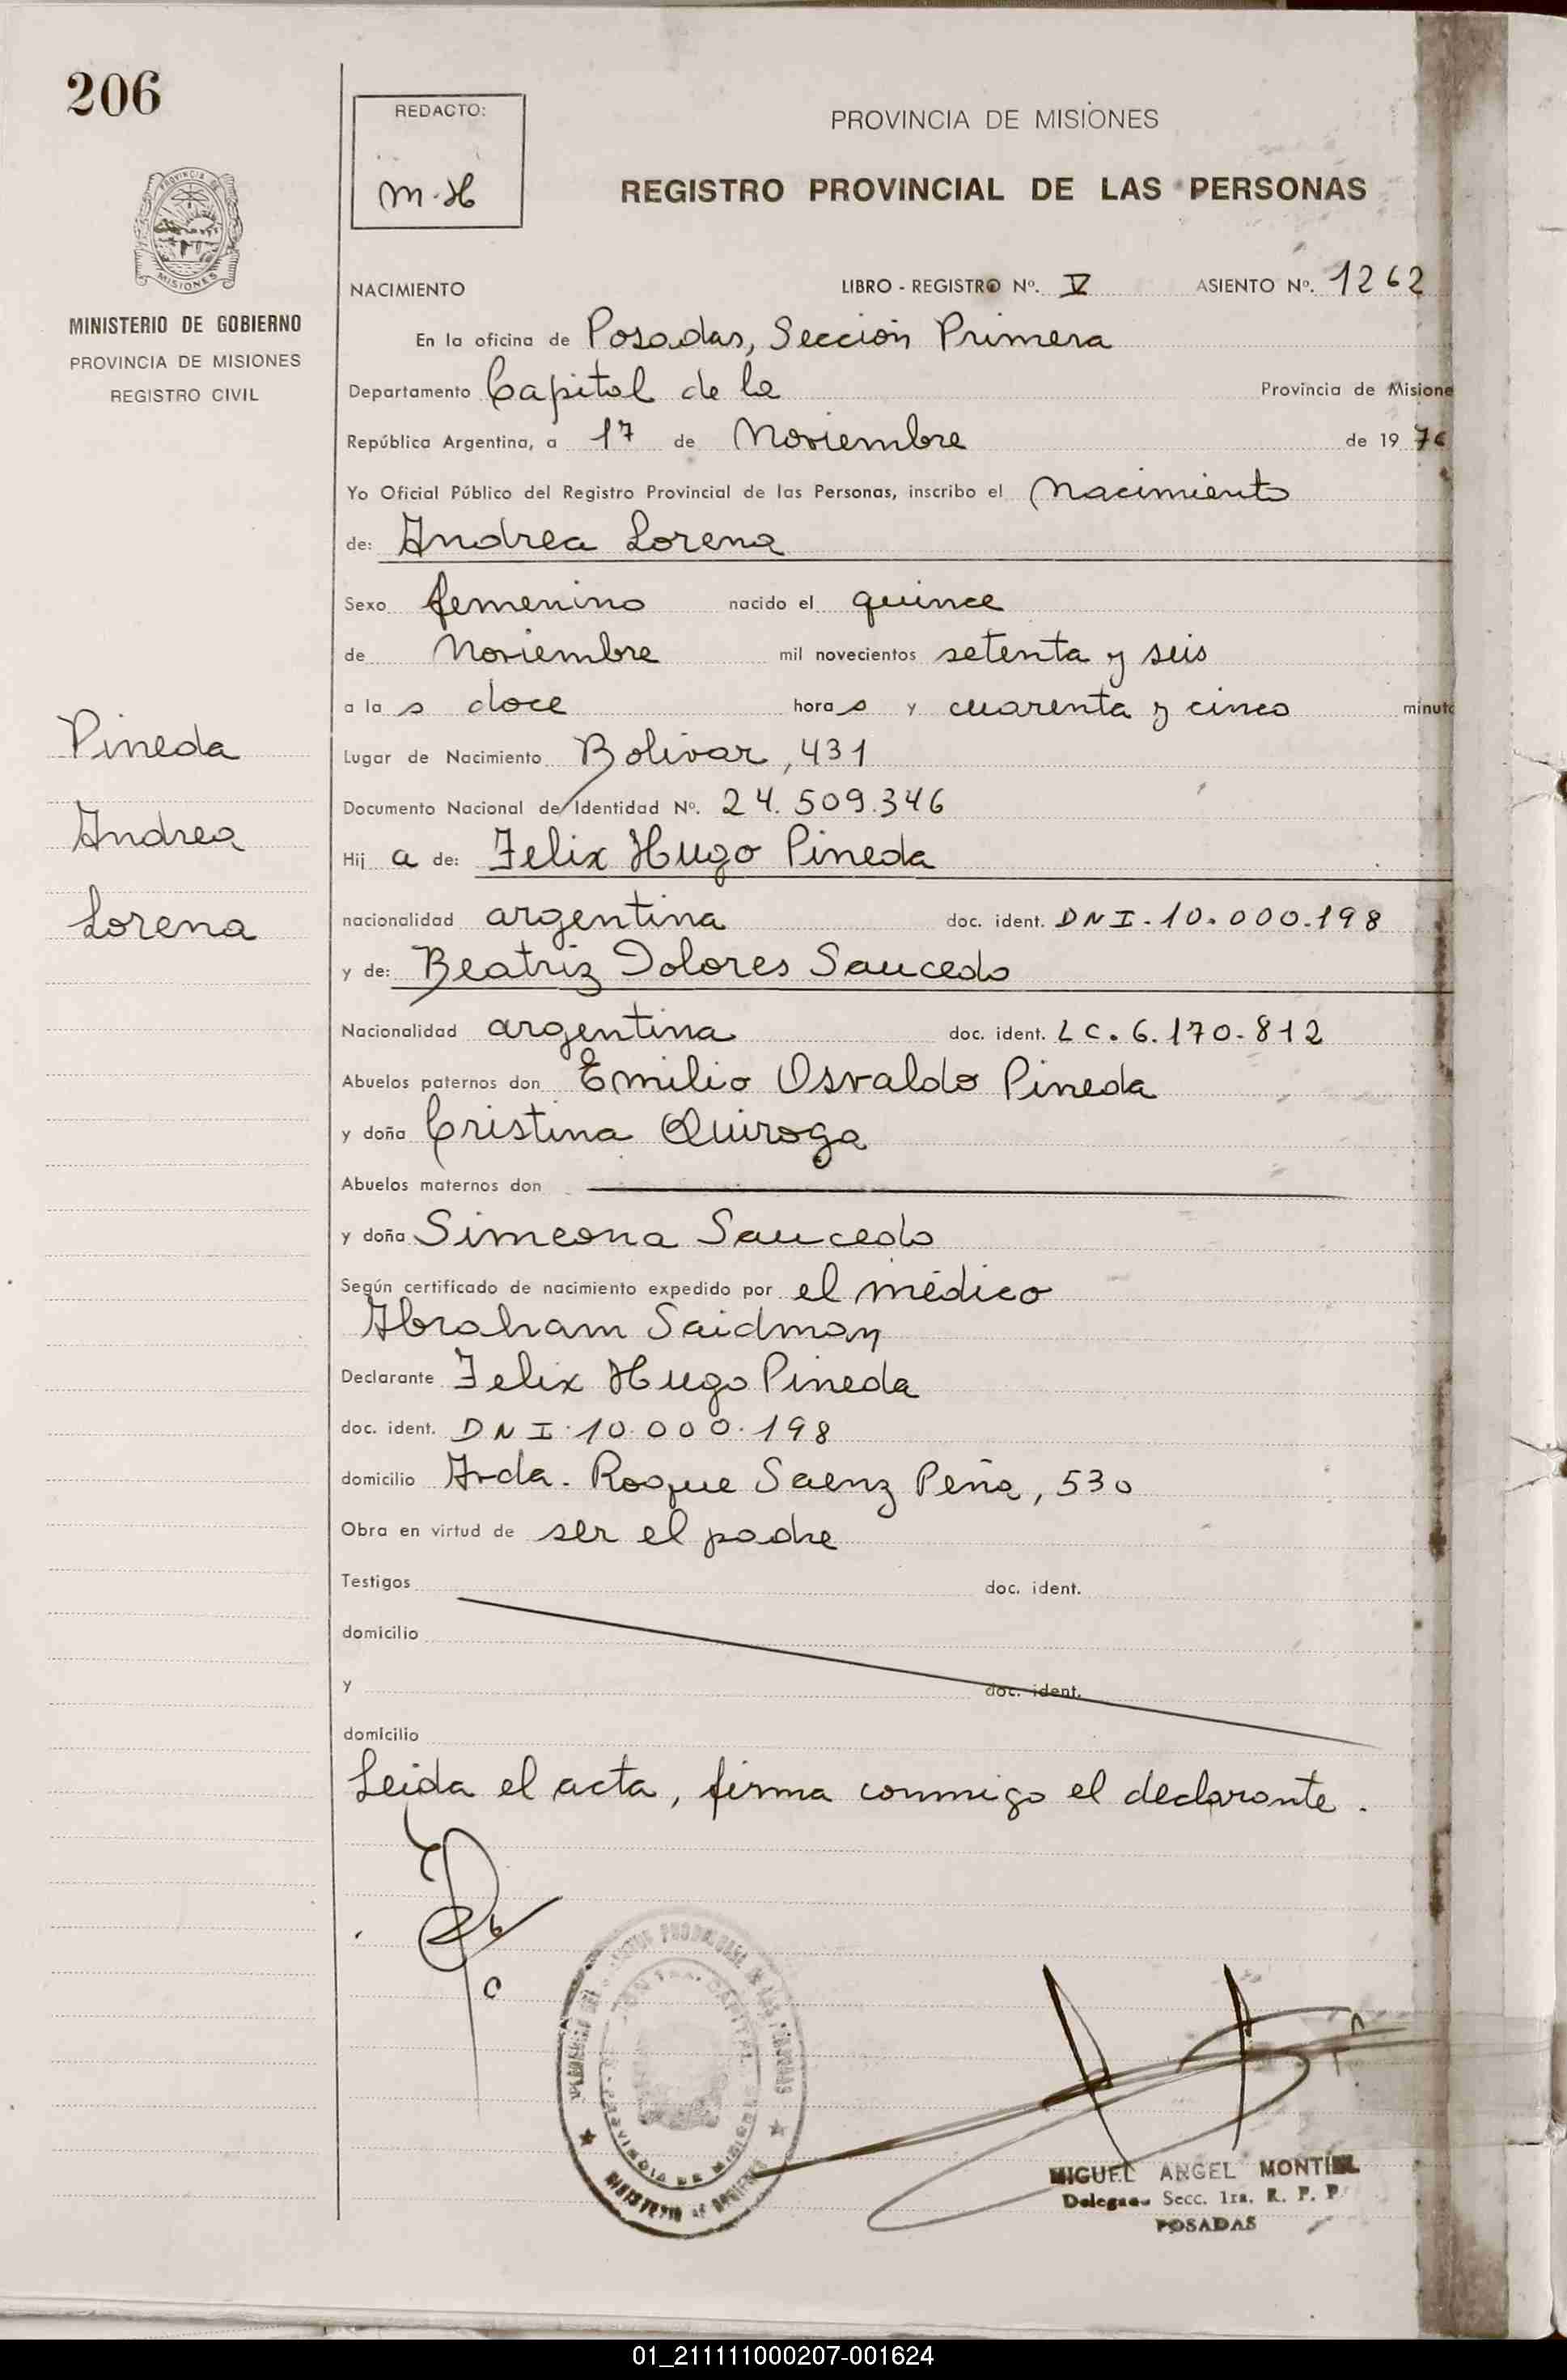 206
REDACTO:
M·H
PROVINCIA DE MISIONES
REGISTRO PROVINCIAL DE LAS PERSONAS
PROVINCIA DE
MISIONES
MINISTERIO DE GOBIERNO
PROVINCIA DE MISIONES
REGISTRO CIVIL
Pineda
Andrea
Lorena
NACIMIENTO LIBRO - REGISTRO Nº. V ASIENTO Nº. 1262
En la oficina de Posadas, Sección Primera
Departamento Capital de la Provincia de Misione
República Argentina, a 17 de Noviembre de 19 76
Yo Oficial Público del Registro Provincial de las Personas, inscribo el Nacimiento
de: Andrea Lorena
Sexo femenino nacido el quince
de Noviembre mil novecientos setenta y seis
a la s doce hora s y cuarenta y cinco minuto
Lugar de Nacimiento Bolivar, 431
Documento Nacional de Identidad Nº. 24.509.346
Hij a de: Felix Hugo Pineda
nacionalidad argentina doc. ident. DNI-10.000.198
y de: Beatriz Dolores Saucedo
Nacionalidad argentina doc. ident. LC.6.170-812
Abuelos paternos don Emilio Osvaldo Pineda
y doña Cristina Quiroga
Abuelos maternos don
y doña Simeona Saucedo
Según certificado de nacimiento expedido por el médico
Abraham Saidman
Declarante Felix Hugo Pineda
doc. ident. DNI·10.000.198
domicilio Avda. Roque Saenz Peña, 530
Obra en virtud de ser el padre
Testigos doc. ident.
domicilio
y doc. ident.
domicilio
Leida el acta, firma conmigo el declarante.
MIGUEL ANGEL MONTIEL
Delegado Secc. 1ra. R. P. P.
POSADAS
01_211111000207-001624